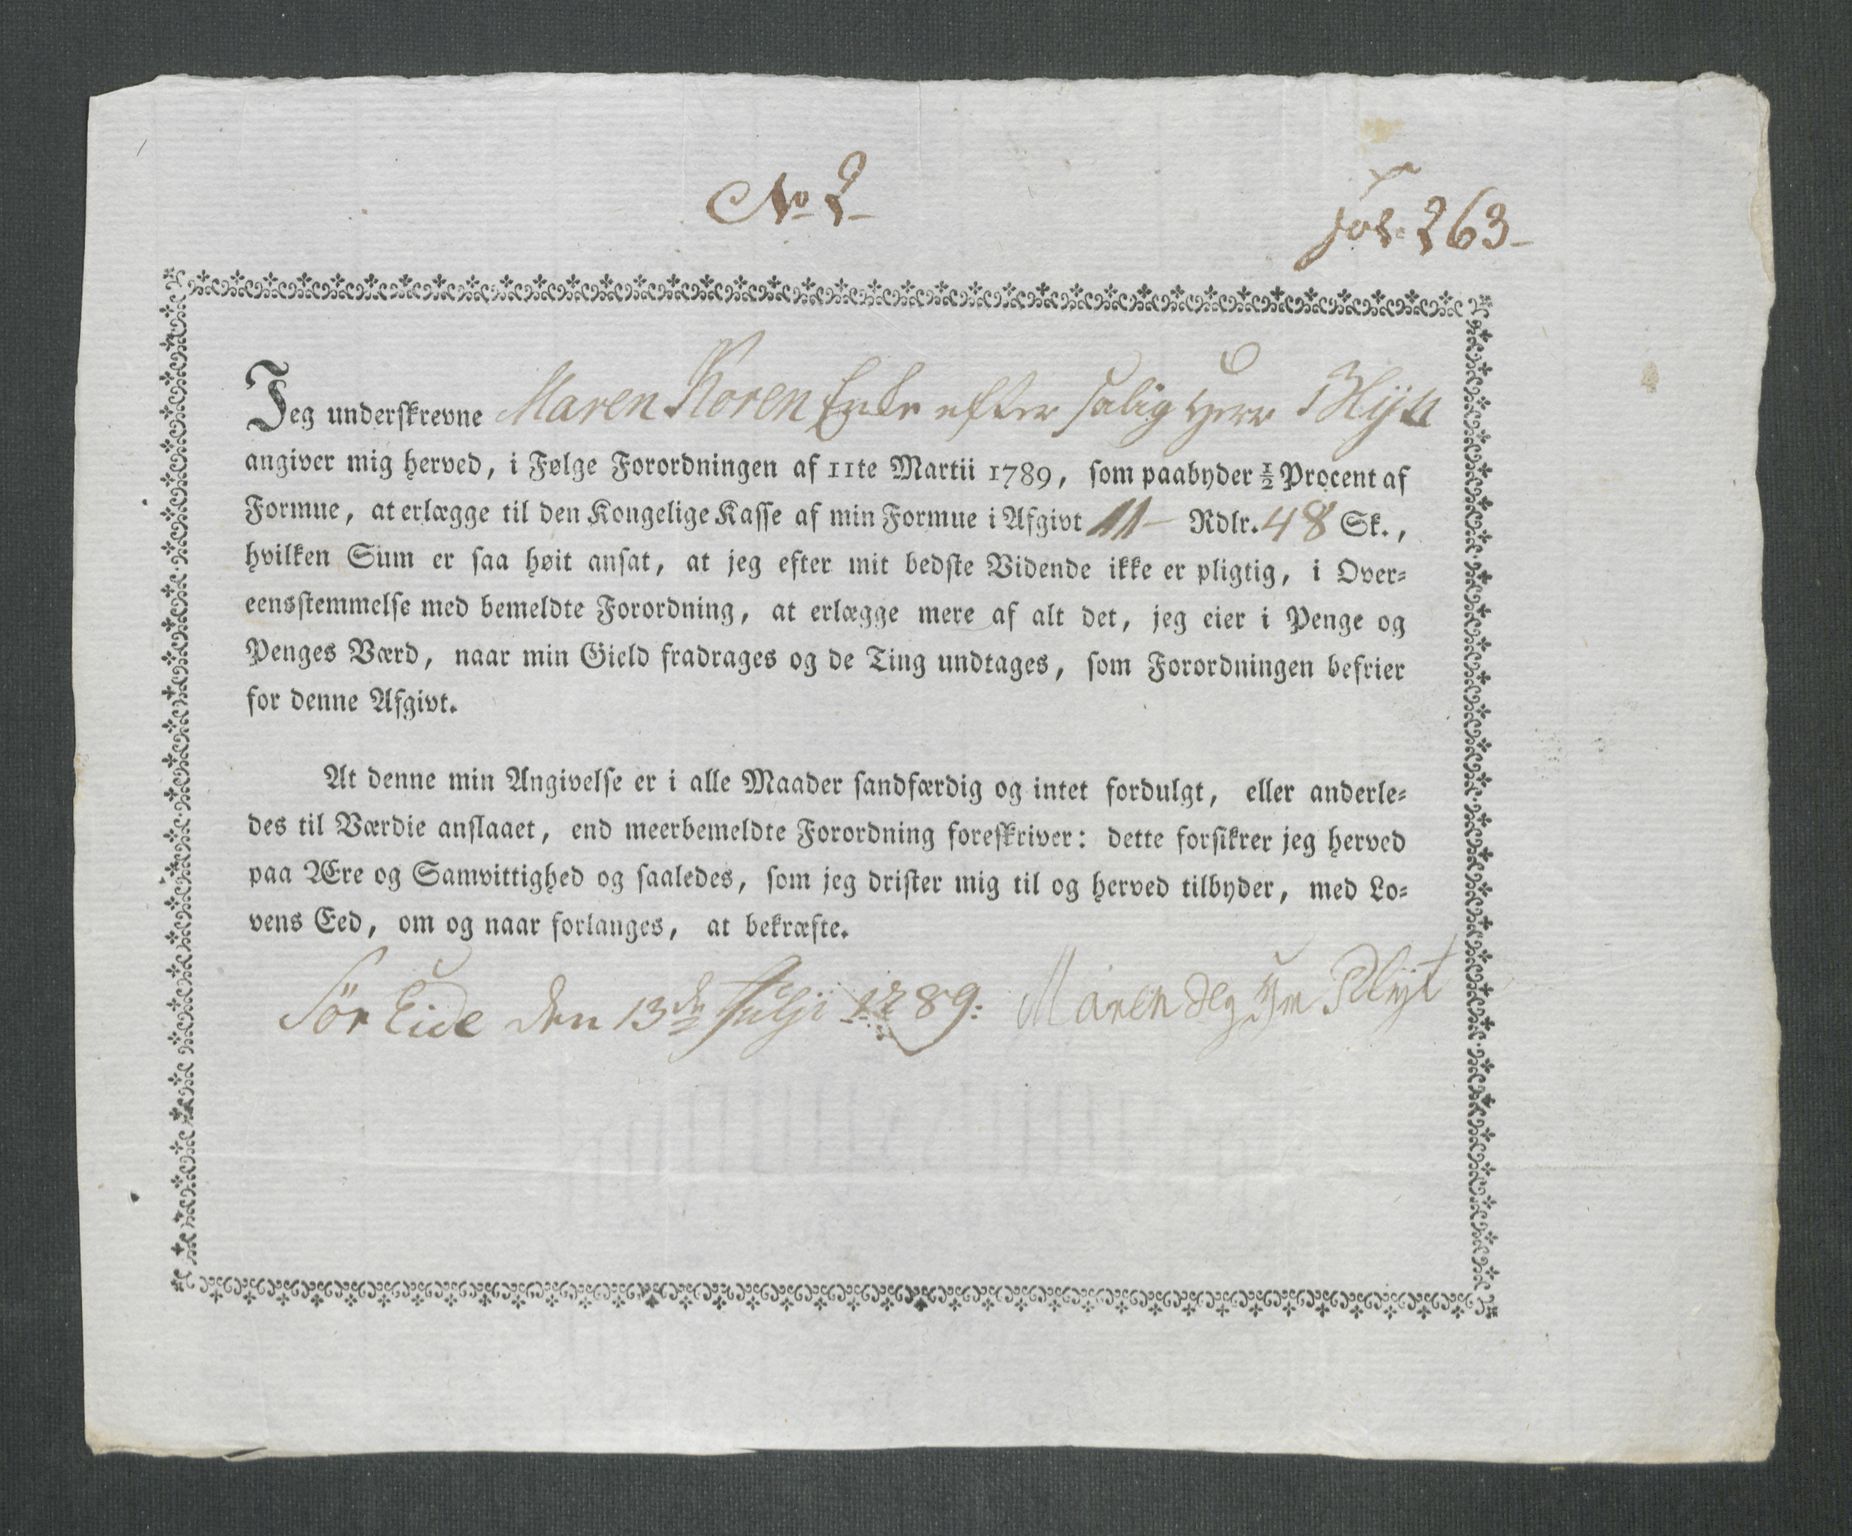 No 2
Fol. 263
Jeg underskrevne Maren Koren Enke efter salig Herr
angiver mig herved, i Følge Forordningen af 11te Martii 1789, som paabyder ½ Procent af
Formue, at erlægge til den Kongelige Kasse af min Formue i Afgivt 11 Rdlr. 48 Sk.,
hvilken Sum er saa høit ansat, at jeg efter mit bedste Vidende ikke er pligtig, i Over-
eensstemmelse med bemeldte Forordning, at erlægge mere af alt det, jeg eier i Penge og
Penges Værd, naar min Gield fradrages og de Ting undtages, som Forordningen befrier
for denne Afgivt.
At denne min Angivelse er i alle Maader sandfærdig og intet fordulgt, eller anderle-
des til Værdie anslaaet, end meerbemeldte Forordning foreskriver: dette forsikrer jeg herved
paa Ære og Samvittighed og saaledes, som jeg drister mig til og herved tilbyder, med Lo-
vens Eed, om og naar forlanges, at bekræfte.
Sör Eide den 13de Julji 1789. Maren Slg Hr Blijt